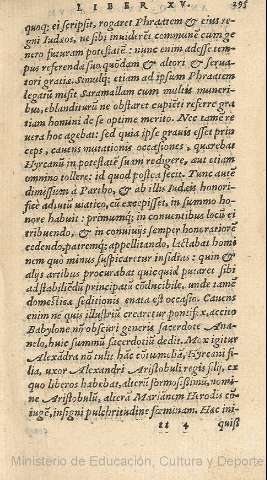 LIBER XV. 295
quoq; ei scripsit, rogaret Phraatem & eius re-
gni Iudæos, ne sibi inuiderēt commune cum ge
nero futuram potestatē: nunc enim adesse tem-
pus referendæ suo quōdam & altori & serua-
tori gratiæ. Simulq; etiam ad ipsum Phraatem
legatū misit Saramallam cum multis muneri-
bus, eblanditurū ne obstaret cupiēti referre gra
tiam homini de se optime merito. Nec tamē re
uera hoc agebat: sed quia ipse grauis esset prin
ceps, cauens mutationis occasiones, quærebat
Hyrcanū in potestatē suam redigere, aut etiam
omnino tollere: id quod postea fecit. Tunc autē
dimissum a Partho, & ab illis Iudæis honori-
ficè adiutū uiatico, cū excepisset, in summo ho-
nore habuit: primumq; in conuentibus locū ei
tribuendo, & in conuiuijs semper honoratiorē
cedendo, patremq; appellitando, lactabat homi
nem quo minus suspicaretur insidias: quin &
alijs artibus procurabat quicquid putaret sibi
ad stabiliēdū principatū cōducibile, unde tamē
domestica seditionis enata est occasio. Cauens
enim ne quis illustriū crearetur pontifex, accito
Babylone nō obscuri generis sacerdote Ana-
nelo, huic summū sacerdotiū dedit. Mox igitur
Alexādra nō tulit hāc cōtumeliā, Hyrcani fi-
lia, uxor Alexandri Aristobuli regis filij, ex
quo liberos habebat, alterū formosissimū, nomi
ne Aristobulū, alterā Mariamen Herodis cō
iugē, insigni pulchritudine fæminam. Hæc ini-
tt 4 quiss
Ministerio de Educación, Cultura y Deporte